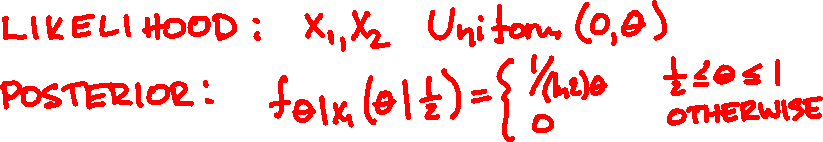 LIKELIHOOD: X₁, X₂ Uniform (0,θ)
POSTERIOR: f_{θ|X₁}(θ|½) = { 1/(ln2)θ ½≤θ≤1
0 OTHERWISE